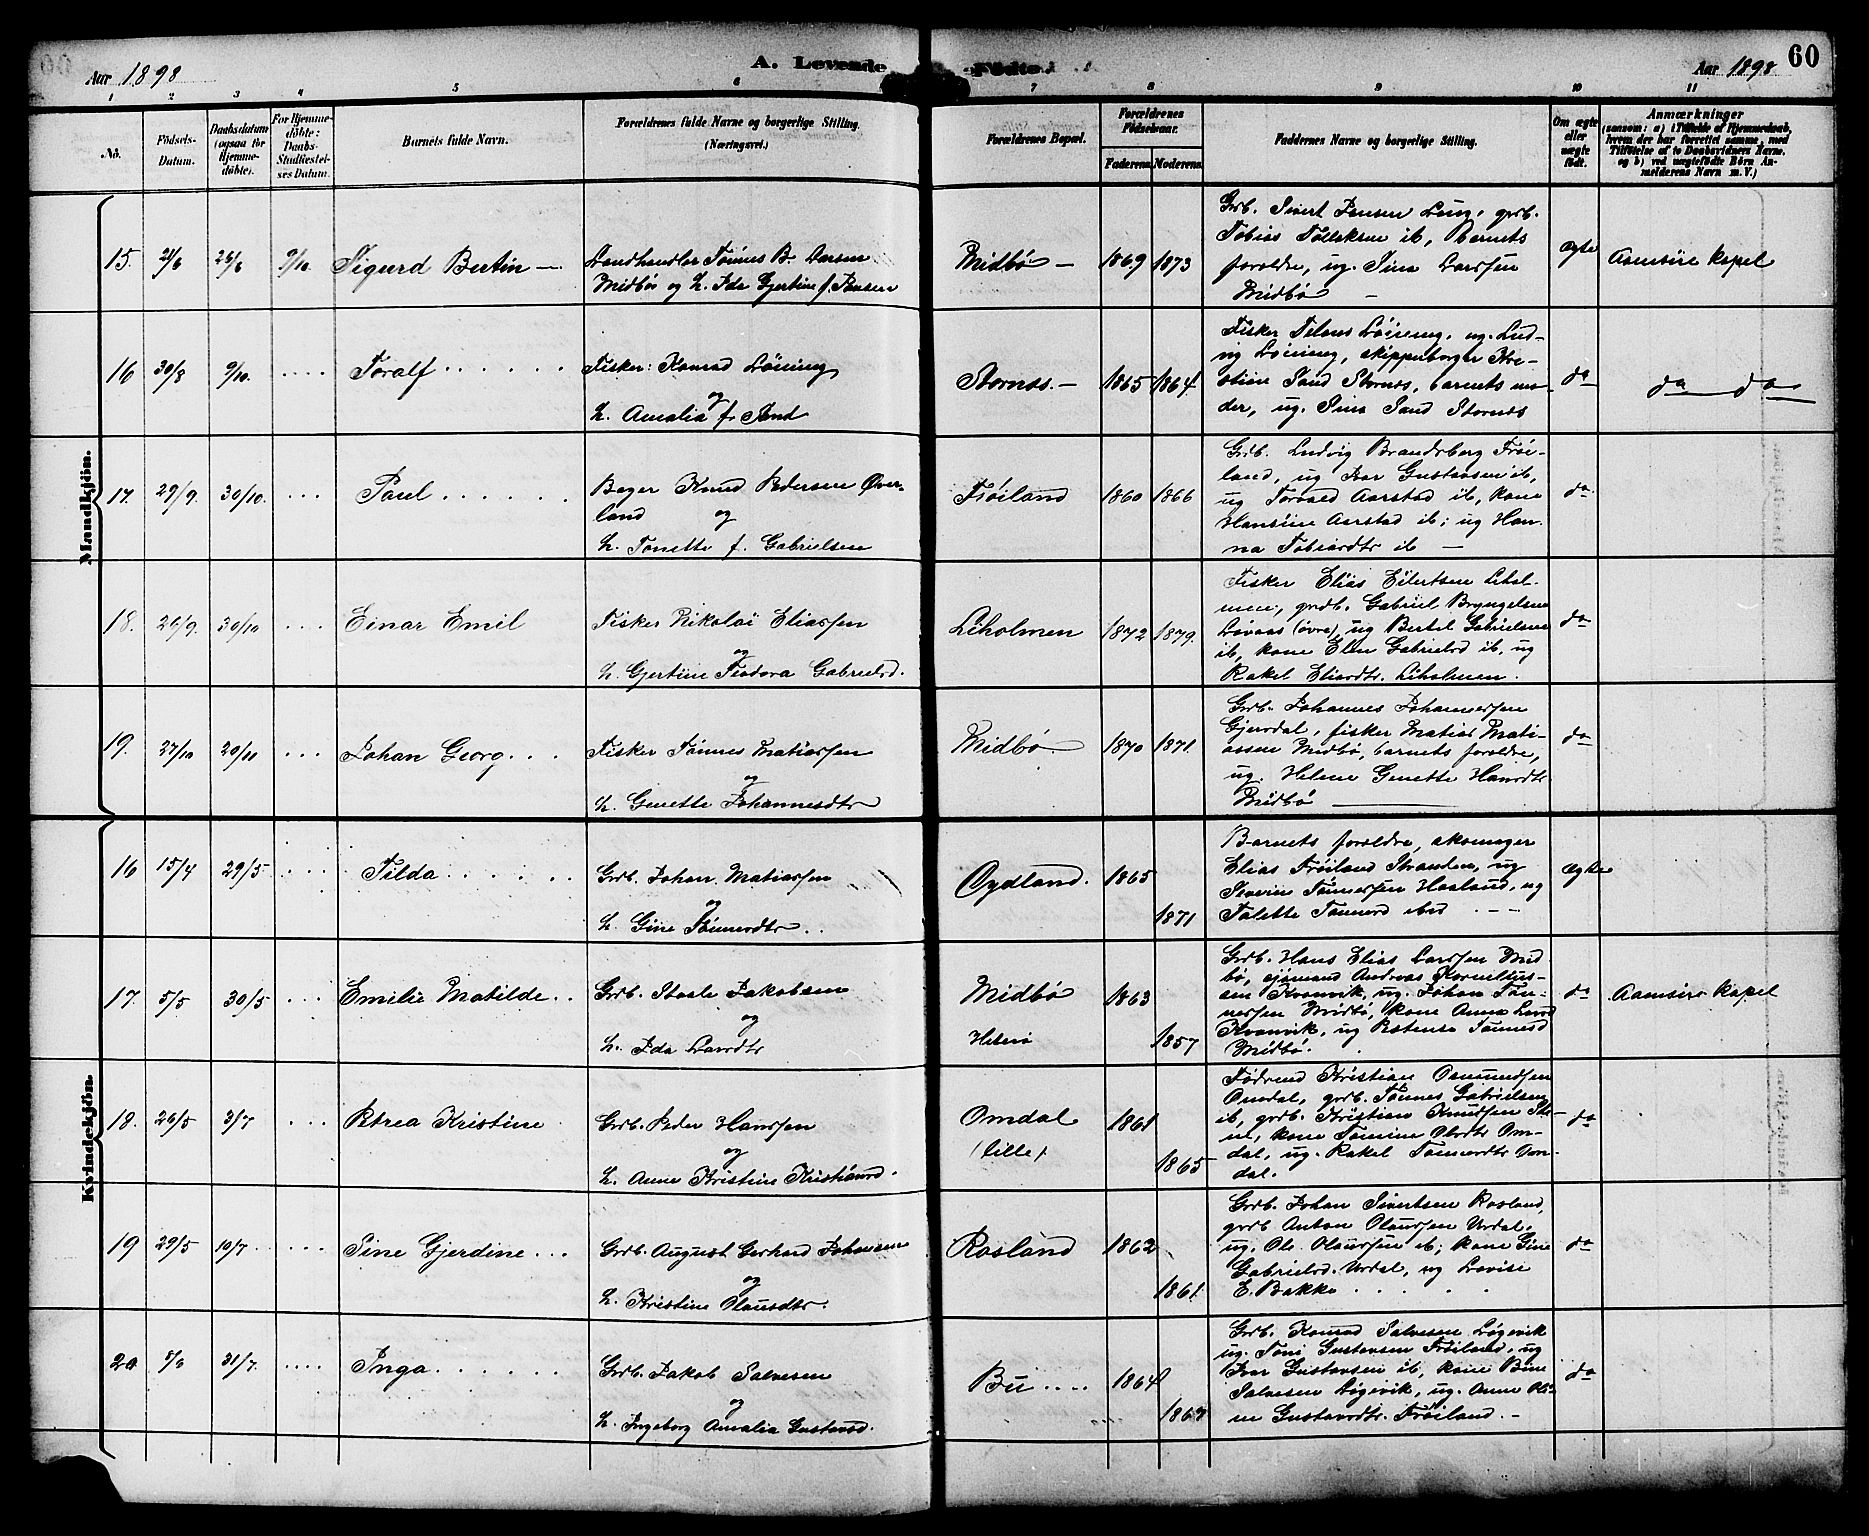 Aar 1898
A. Levende
Fødte.
Aar 1898
60
1 2 3 4 5 6 7 8 9 10 11
No.
Födsels-
Datum.
Daabsdatum
(ogsaa for
Hjemme-
døbte).
For Hjemme-
døbte:
Daabs-
Stadfæstel-
ses Datum.
Barnets fulde Navn.
Forældrenes fulde Navne og borgerlige Stilling.
(Næringsvei.)
Forældrenes Bopæl.
Forældrenes
Födselsaar.
Faderens. Moderens.
Faddernes Navne og borgerlige Stilling.
Om ægte
eller
uægte
født.
Anmærkninger
(saasom: a) Tilfælde af Hjemmedaab,
hvem der har forrettet samme, med
Tilføielse af to Daabsvidners Navne,
og b) ved uægtefødte Børn An-
melderens Navn m. V.)
Mandkjön.
15. 21/6 26/6 9/10. Sigurd Bertin
Landhandler Tönnes B. Larsen
Midbö og h. Ida Gjertine f. Jensen
Midbö 1869 1873
Grb. Sivert Jensen
Tobias Tolleksen ib, Barnets
foroldre, ug. Sina Larssen
Midbö
Ægte Aamsire Kapel
16 30/8 9/10. Toralf
Fisker: Konrad Löining
og
h. Amalia f. Sand
Stornes. 1865 1864.
Fisker Löining, ug. Lud-
vig Löining, skippenborger Kri-
stine Sand Stornes, barnets mo-
der, ug. Sina Sand Stornes
do do do
17. 29/9. 30/10. Paul
Bager Knud Pedersen Över-
land og
h. Tonette f. Gabrielsen
Fröiland 1860 1866
Grb. Ludvig Brandsberg Fröi-
land, ug Ivar Gustavsen ib,
ug Torvald Aarstad ib, kone
Hansine Aarstad ib; ug Han-
na Tobiasdtr ib
do
18. 26/9. 30/10 Einar Emil
Fisker Nikolai Eliassen
og
h. Gjertine Teodora Gabrielsd.
Liholmen 1872 1879.
Fisker Elias Eilertsen Lihol-
men, grdb. Gabriel Bryngelsen
Lövaas (övre), ug Bertel Gabrielsen
ib, kone Elen Gabrielsd ib, ug
Rakel Eliasdtr. Liholmen.
do
19. 27/10 20/11 Johan Georg
Fisker Tönnes Matiassen
og
h. Genette Johannesdtr
Midbö. 1870 1871.
Grb. Johannes Johannessen
Gjersdal, fisker Matias Mati-
assen Midbö, barnets foroldre,
ug. Helene Genette Hansdtr
Midbö
do
Kvindekjön.
16 15/4 29/5 Tilda
Grb. Johan Matiassen
og
h. Gine Tönnesdtr
Oydland. 1865 1871
Barnets foroldre, skomager
Elias Fröiland Stranten, ug
Severin Tönnessen Haaland, ug
Talette Tönnesd ibid
Ægte
17. 5/5 30/5 Emilie Matilde
Grb. Staale Jakobsen
og
h. Ida Larsdtr
Midbö
Hiterö
1863 1857
Grb. Hans Elias Larssen Mid-
bö, sjömand Andreas Kornelius-
sen Kvanvik, ug. Johan Tön-
nessen Midbö, kone Anna
Kvanvik, ug Tönnesd
Midbö.
do Aamsire Kapel
18. 26/5 3/7 Petrea Kristine
Grb. Peder Hanssen
og
h. Anne Kristine Kristiansd.
Omdal
(lille).
1861 1865
Födraad Kristian Osmundsen
Omdal, grdb. Tönnes Gabrielsen
ib, grdb. Kristian Knudsen
kone Tomine Olsdtr Om-
dal, ug. Rakel Tönnesdtr Om-
dal.
do
19 29/5 10/7 Sine Gjerdine
Grb. August Gerhard Johansen
og
h. Kristine Olausdtr.
Rosland 1862 1861
Grb. Johan Sivertsen Rosland,
grdb Anton Olaussen Urdal,
ug. Ole Olaussen ib; kone Gine
Gabrielsd. Urdal, ug Lovise
E. Bakke
do
20 5/6 31/7. Inga
Grb. Jakob Salvesen
og
h. Ingeborg Amalia Gustavsd.
Bu 1864 1867
Grb. Konrad Salvesen Lögevik
ug. Toni Gustavsen Fröiland, ug
Ivar Gustavsen ib, kone Bine
Salvesen Lögevik, ug. Anne Oli-
ne Gustavsdtr. Fröiland.
do